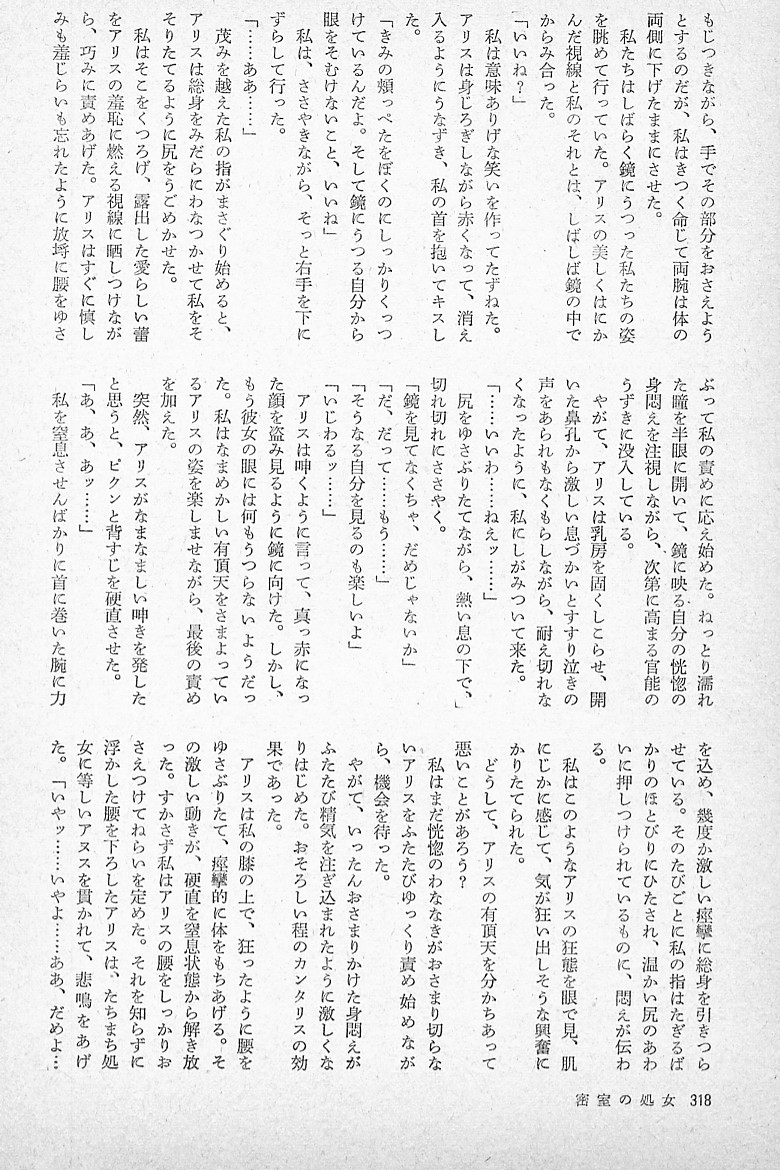 もじつきながら、手でその部分をおさえよう
とするのだが、私はきつく命じて両腕は体の
両側に下げたままにさせた。
私たちはしばらく鏡にうつった私たちの姿
を眺めて行っていた。アリスの美しくはにか
んだ視線と私のそれとは、しばしば鏡の中で
からみ合った。
「いいね？」
私は意味ありげな笑いを作ってたずねた。
アリスは身じろぎしながら赤くなって、消え
入るようにうなずき、私の首を抱いてキスし
た。
「きみの頬っぺたをぼくのにしっかりくっつ
けているんだよ。そして鏡にうつる自分から
眼をそむけないこと、いいね」
私は、ささやきながら、そっと右手を下に
ずらして行った。
「……ああ……」
茂みを越えた私の指がまさぐり始めると、
アリスは総身をみだらにわなつかせて私をそ
そりたてるように尻をうごめかせた。
私はそこをくつろげ、露出した愛らしい蕾
をアリスの羞恥に燃える視線に晒しつけなが
ら、巧みに責めあげた。アリスはすぐに慎し
みも羞じらいも忘れたように放埓に腰をゆさ
ぶって私の責めに応え始めた。ねっとり濡れ
た瞳を半眼に開いて、鏡に映る自分の恍惚の
身悶えを注視しながら、次第に高まる官能の
うずきに没入している。
やがて、アリスは乳房を固くしこらせ、開
いた鼻孔から激しい息づかいとすすり泣きの
声をあられもなくもらしながら、耐え切れな
くなったように、私にしがみついて来た。
「……いいわ……ねえッ……」
尻をゆさぶりたてながら、熱い息の下で、」
切れ切れにささやく。
「鏡を見てなくちゃ、だめじゃないか」
「だ、だって……もう……」
「そうなる自分を見るのも楽しいよ」
「いじわるッ……」
アリスは呻くように言って、真っ赤になっ
た顔を盗み見るように鏡に向けた。しかし、
もう彼女の眼には何もうつらないようだっ
た。私はなまめかしい有頂天をさまよってい
るアリスの姿を楽しませながら、最後の責め
を加えた。
突然、アリスがなまなましい呻きを発した
と思うと、ピクンと背すじを硬直させた。
「あ、あ、あッ……」
私を窒息させんばかりに首に巻いた腕に力
を込め、幾度か激しい痙攣に総身を引きつら
せている。そのたびごとに私の指はたぎるば
かりのほとびりにひたされ、温かい尻のあわ
いに押しつけられているものに、悶えが伝わ
る。
私はこのようなアリスの狂態を眼で見、肌
にじかに感じて、気が狂い出しそうな興奮に
かりたてられた。
どうして、アリスの有頂天を分かちあって
悪いことがあろう？
私はまだ恍惚のわななきがおさまり切らな
いアリスをふたたびゆっくり責め始めなが
ら、機会を待った。
やがて、いったんおさまりかけた身悶えが
ふたたび精気を注ぎ込まれたように激しくな
りはじめた。おそろしい程のカンタリスの効
果であった。
アリスは私の膝の上で、狂ったように腰を
ゆさぶりたて、痙攣的に体をもちあげる。そ
の激しい動きが、硬直を窒息状態から解き放
った。すかさず私はアリスの腰をしっかりお
さえつけてねらいを定めた。それを知らずに
浮かした腰を下ろしたアリスは、たちまち処
女に等しいアヌスを貫かれて、悲鳴をあげ
た。「いやッ……いやよ……ああ、だめよ…
密室の処女 318